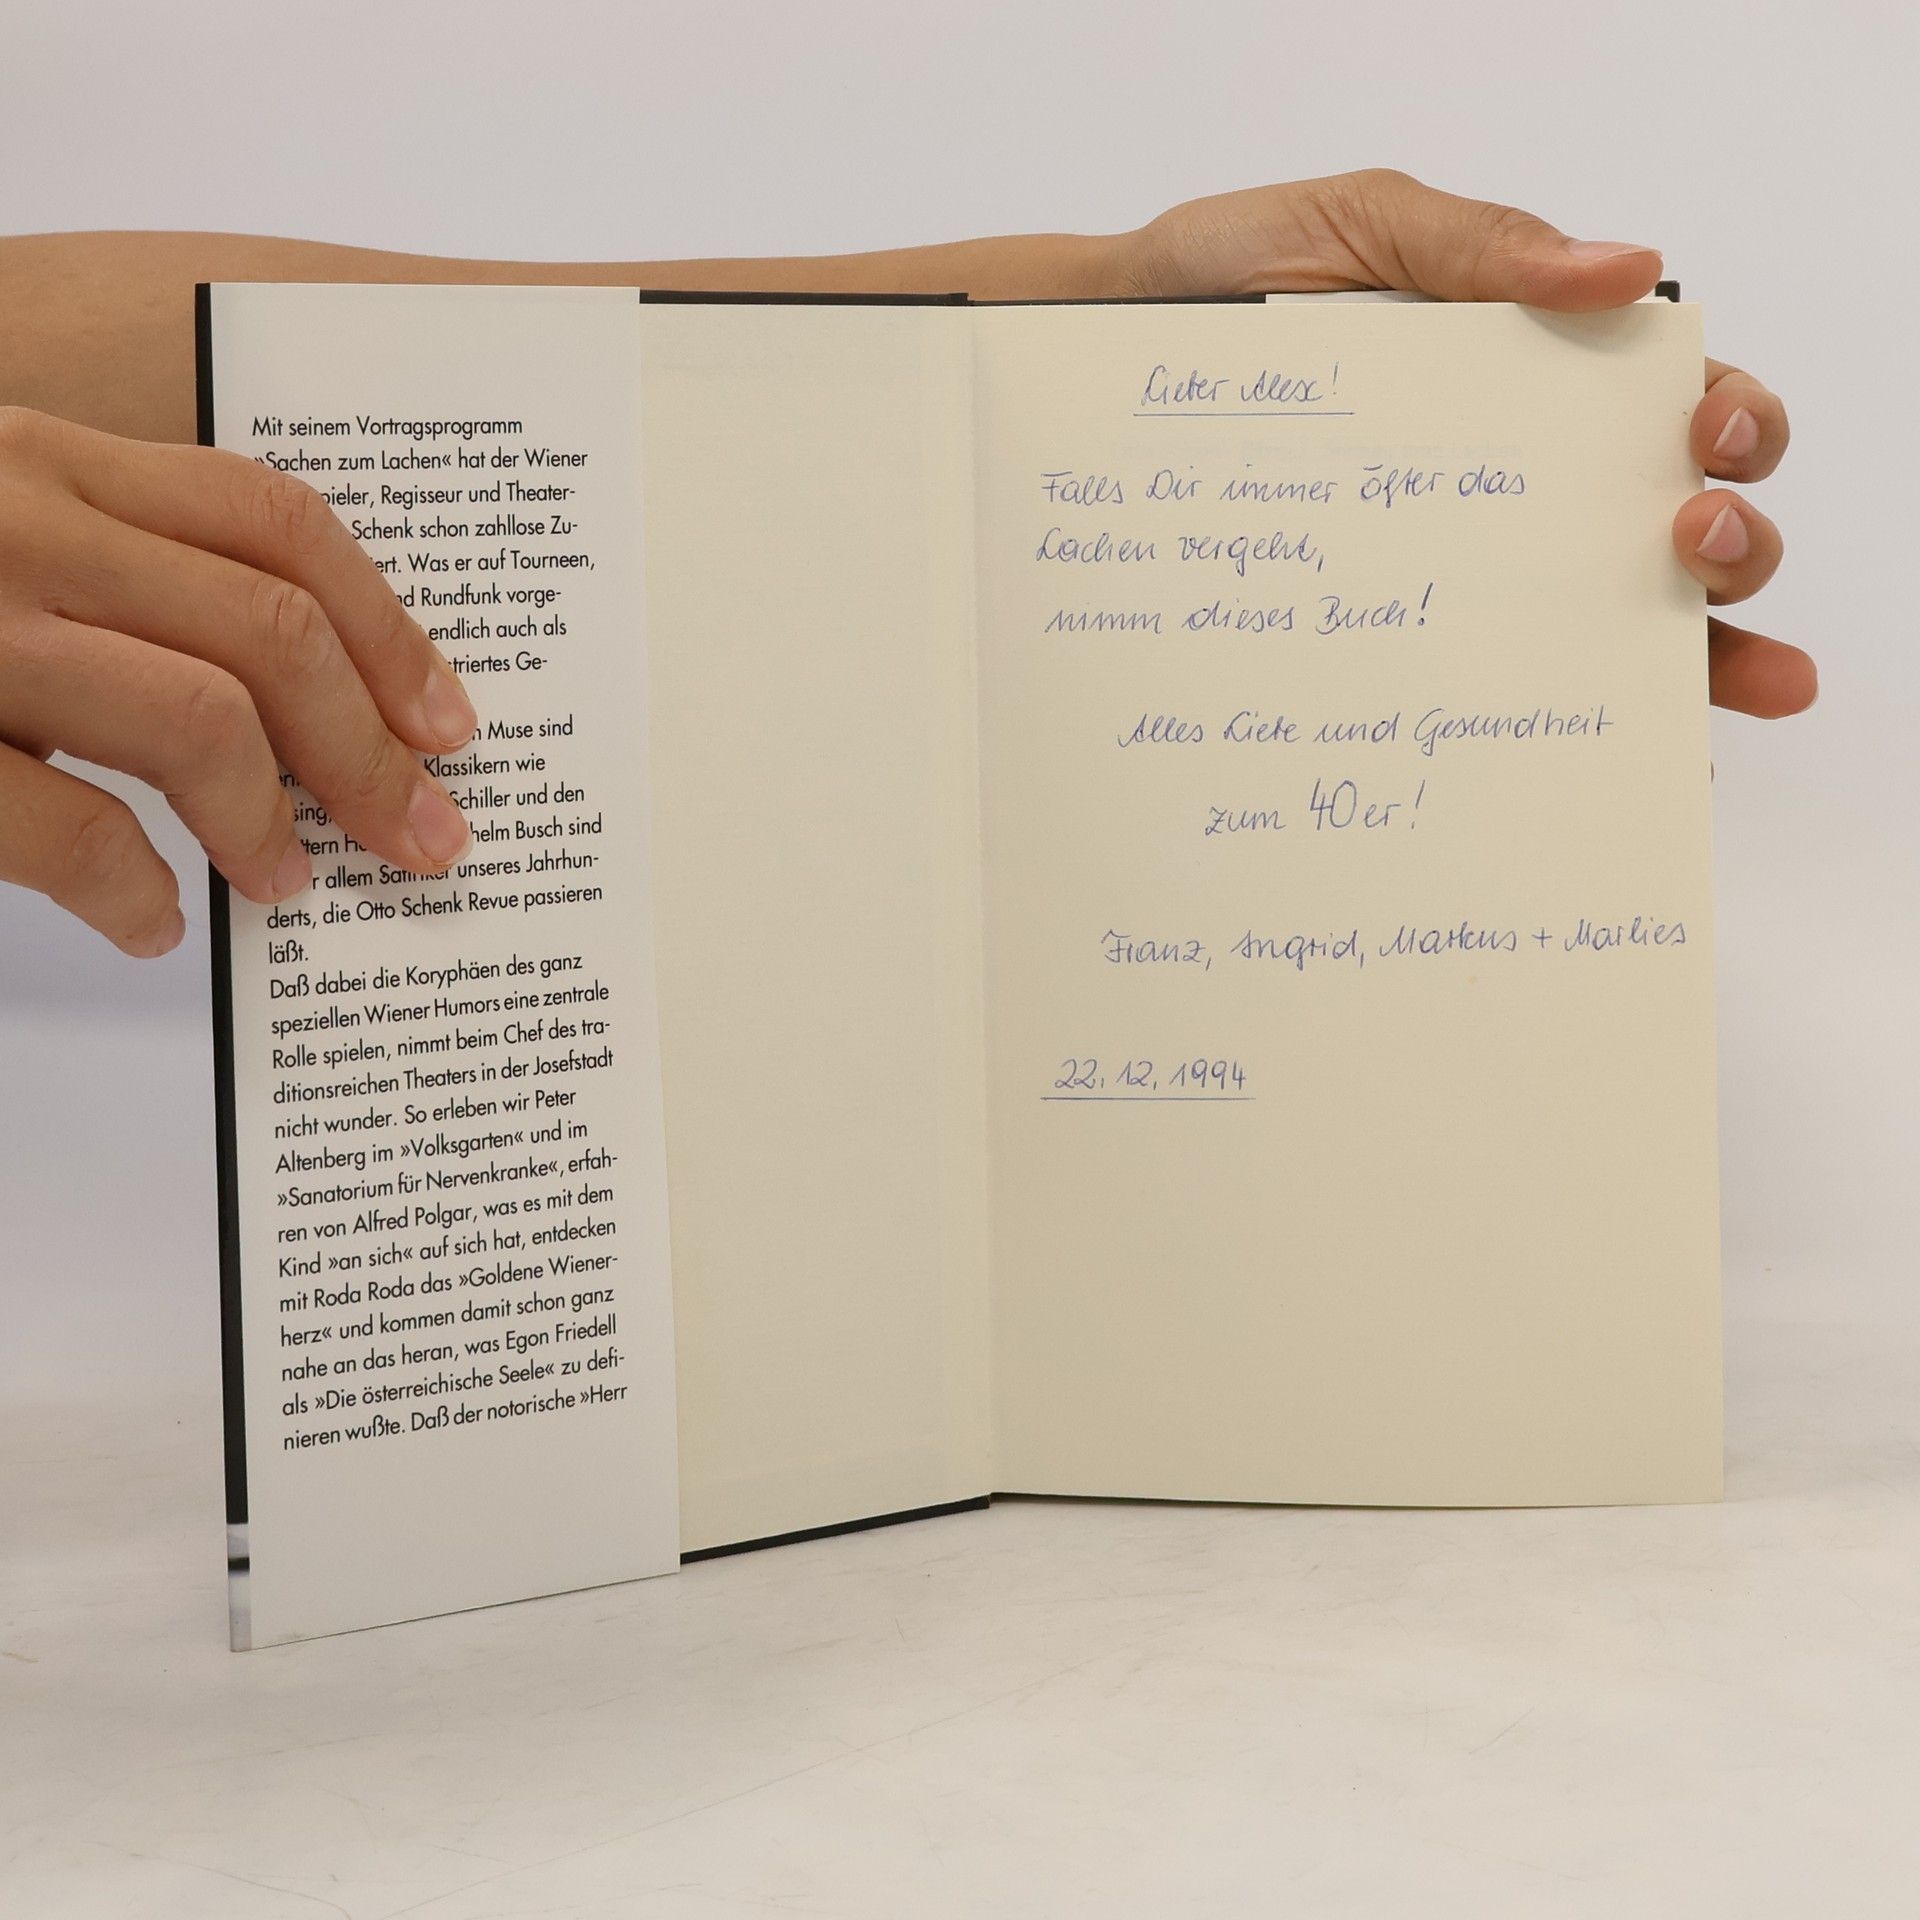 Mit seinem Vortragsprogramm
»Sachen zum Lachen« hat der Wiener
Regisseur und Theater-
Schenk schon zahllose Zu-
Was er auf Tourneen,
Rundfunk vorge-
endlich auch als
Ge-
Muse sind
Klassikern wie
Schiller und den
Busch sind
allem unseres Jahrhun-
derts, die Otto Schenk Revue passieren
läßt.
Daß dabei die Koryphäen des ganz
speziellen Wiener Humors eine zentrale
Rolle spielen, nimmt beim Chef des tra-
ditionsreichen Theaters in der Josefstadt
nicht wunder. So erleben wir Peter
Altenberg im »Volksgarten« und im
»Sanatorium für Nervenkranke«, erfah-
ren von Alfred Polgar, was es mit dem
Kind »an sich« auf sich hat, entdecken
mit Roda Roda das »Goldene Wiener-
herz« und kommen damit schon ganz
nahe an das heran, was Egon Friedell
als »Die österreichische Seele« zu defi-
nieren wußte. Daß der notorische »Herr
Lieber Alex!
Falls Dir immer öfter das
Lachen vergeht,
nimm dieses Buch!
Alles Liebe und Gesundheit
zum 40er!
Franz, Ingrid, Markus + Marlies
22.12.1994